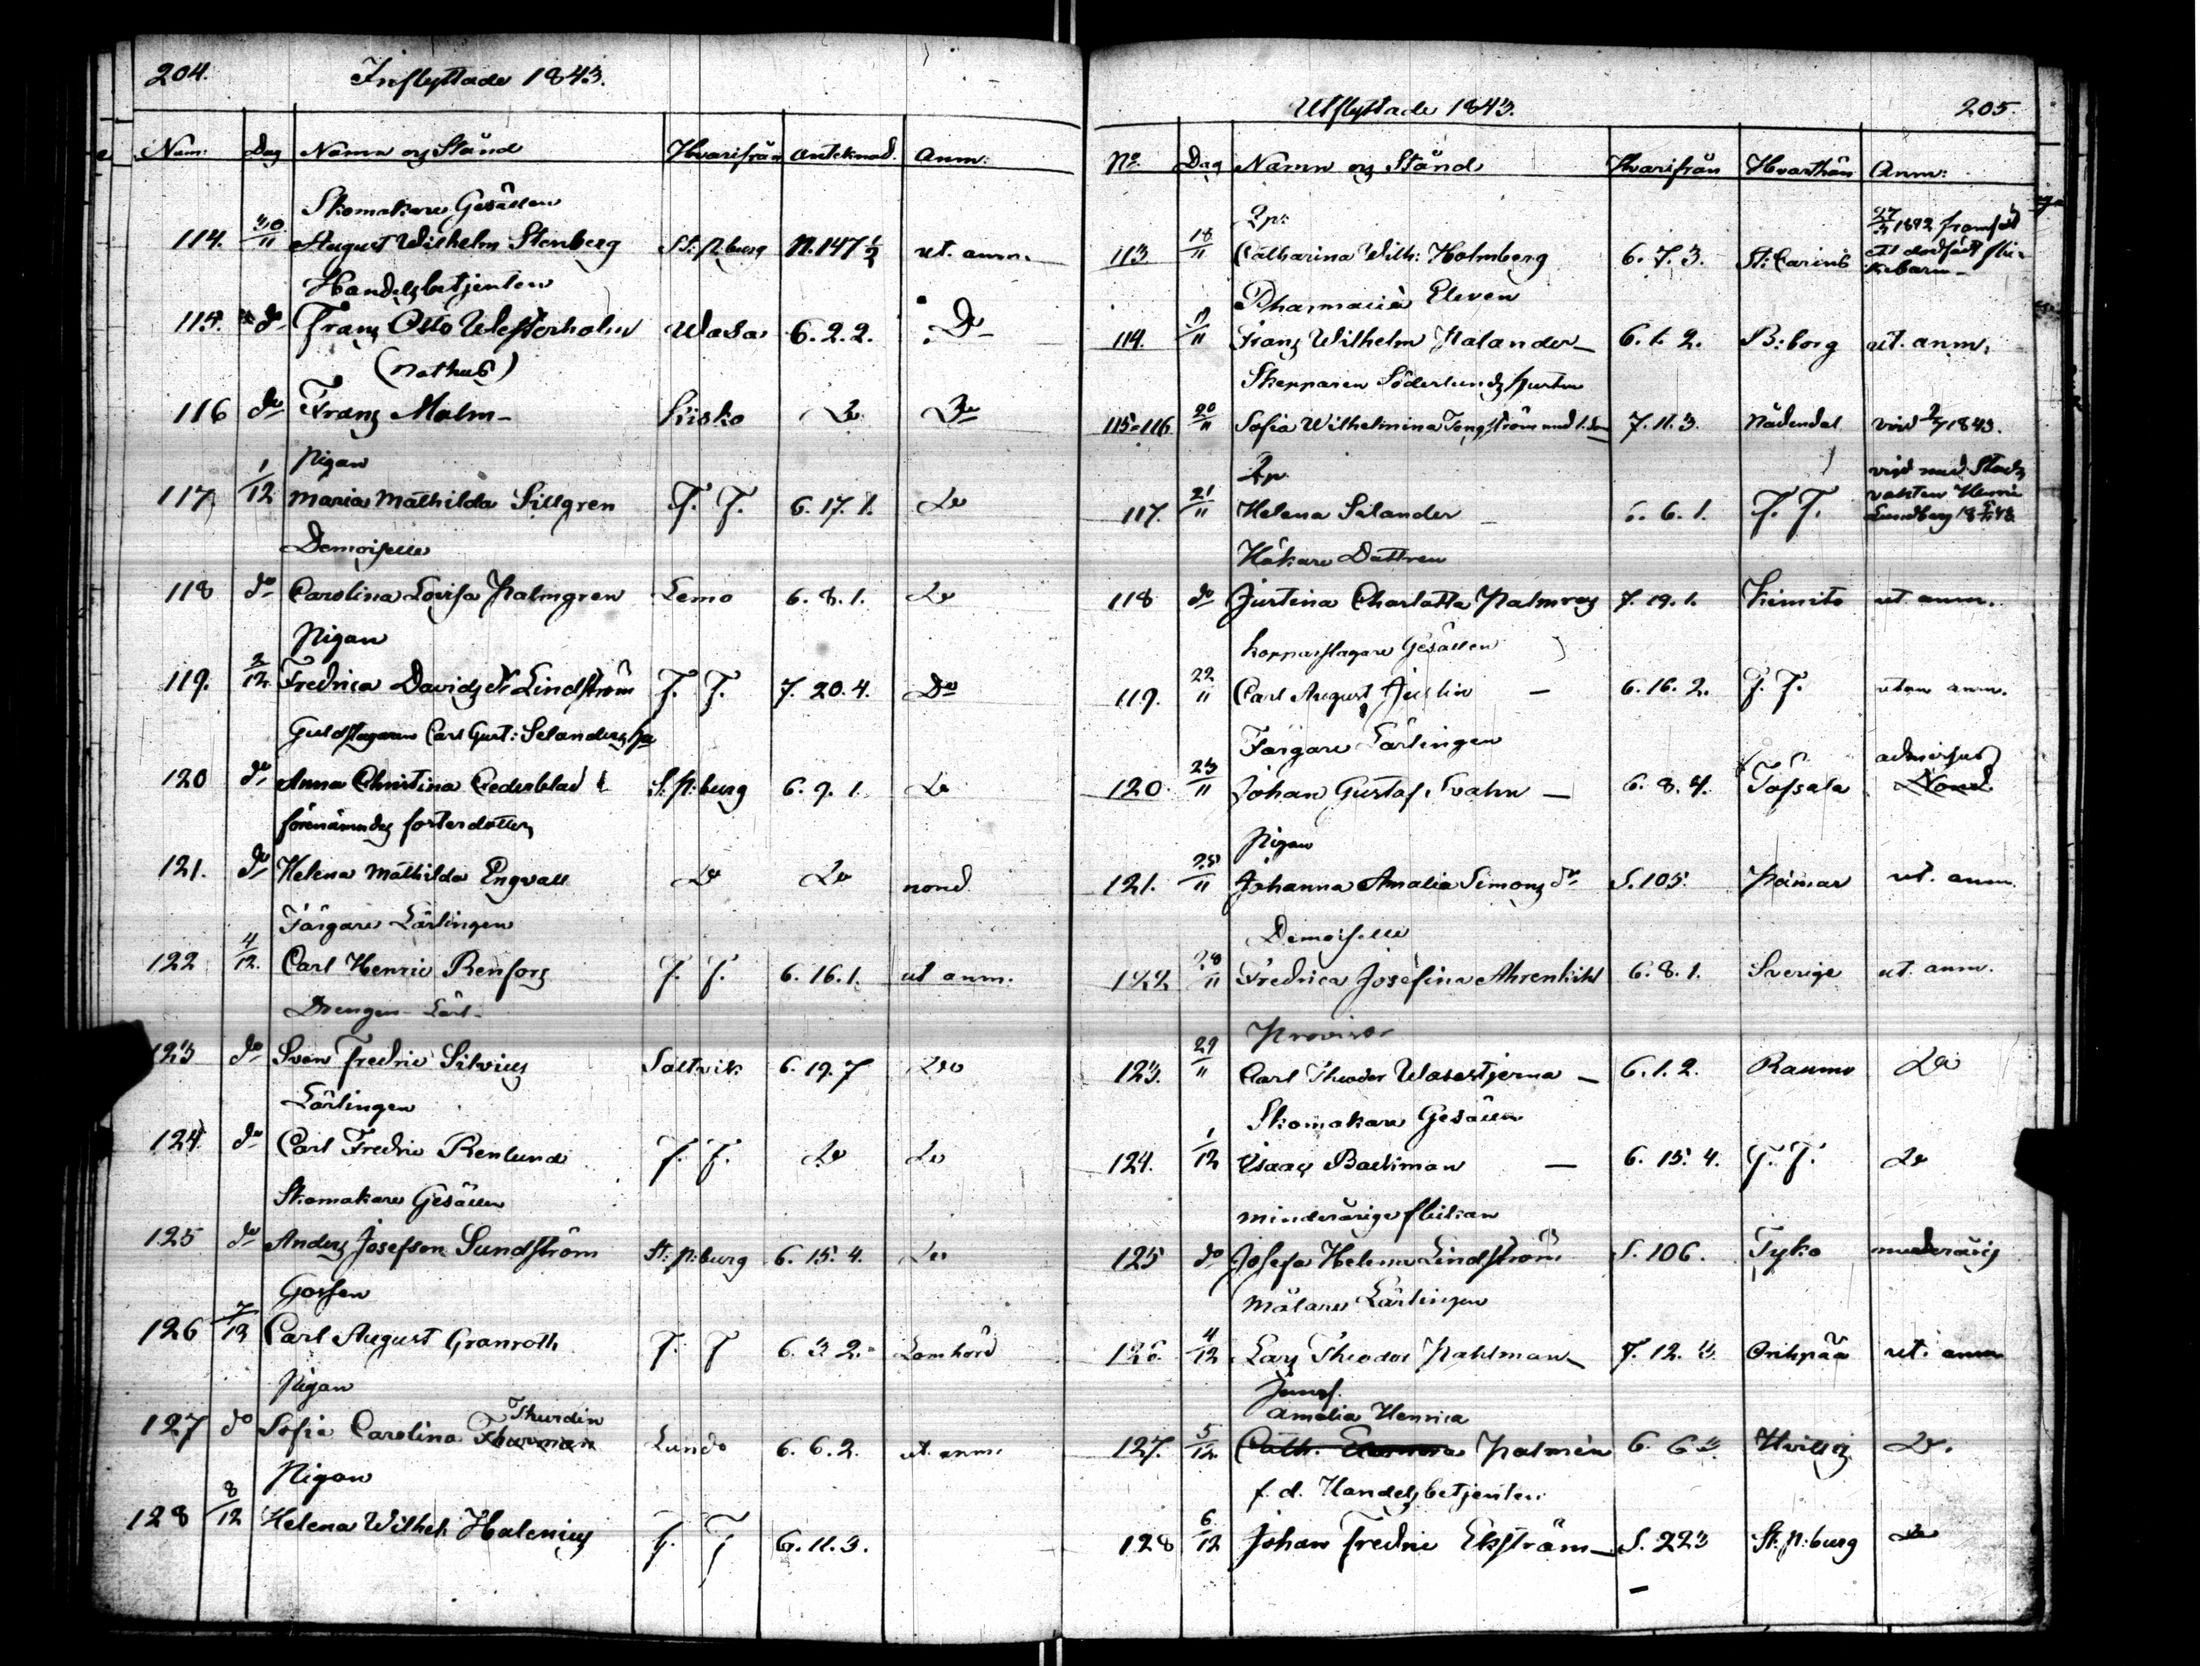 204.
Inflyttade 1843.
Num: Dag Namn og Stånd Hvarifrån anteknad. Anm:
Skomakare Gesällen
114. 30/11 August Wilhelm Stenberg St: P:burg N. 147 1/2 ut. anm.
Handelsbetjenten
115. do Franz Otto Westerholm Wasa 6. 2. 2. Do
(Nothus)
116 do Franz Malm - Kisko Do Do
Pigan
117 1/12 Maria Mathilda Sillgren F. F. 6. 17. 1. Do
Demoiselle
118 do Carolina Lovisa Palmgren Lemo 6. 8. 1. Do
Pigan
119. 2/12 Fredrica Davids dr Lindström F. F. 7. 20. 4. Do
Guldslagaren Carl Gust: Selanders hu
120 do Anna Christina Cederblad S:t P:burg 6. 9. 1. Do
förenämndes fosterdotter
121. do Helena Mathilda Engvall Do Do nond.
Färgare Lärlingen
122 4/12. Carl Henric Renfors F. F. 6. 16. 1. ut anm.
Drengen - Lärl -
123 do Sven Fredric Silvius Saltvik 6. 19. 7 Do
Lärlingen
124 do Carl Fredric Renlund F. F. Do Do
Skomakare Gesällen
125 do Anders Josefson Sundström St: P:burg 6. 15. 4. Do
Gossen
126 7/12 Carl August Granroth F. F 6. 3 2.
Pigan
127 do Sofia Carolina Thurdin Lundo 6. 6. 2. ut. anm.
Pigan
128 8/12 Helena Wilhel: Halenius F. F 6. 11. 3.
Utflyttade 1843.
205.
No. Dag Namn og Stånd Hvarifrån Hvarthän Anm:
Pp:
113 18/11 Catharina Wilh: Holmberg 6. 7. 3. St: Carins
Pharmacie Eleven
114. 11 Franz Wilhelm Palander 6. 1. 2. B:borg ut. anm.
Skepparen Söderlunds hustru
115-116 20/11 Sofia Wilhelmina 7. 11. 3. Nådendal 1843.
Pp.
117. 21/11 Helena Selander - 6. 6. 1. F. F. Lundberg
Hökare Dottren
118 do Justina Charlotta Palmros 7. 19. 1. Kimito ut. anm.
Kopparslagare Gesällen
119. 22/11 Carl August Juslin - 6. 16. 2. F. F. utan anm.
Färgare Lärlingen
120. 23/11 Johan Gustaf Svahn - 6. 8. 4. Töfsala admissus
Pigan
121. 25/11 Johanna Amalia Simons dr S. 105. Pemar ut. anm.
Demoiselle
122 28/11 Fredrica Josefina Ahrenkihl 6. 8. 1. Sverige ut. anm.
Provisor
123. 29/11 Carl Theodor Wasastjerna - 6. 1. 2. Raumo Do
Skomakare Gesällen
124. 1/12 Isaac Backman - 6. 15. 4. F. F. Do
minderårige flickan
125 do Josefa Helena Lindström S. 106. Tyko minderårig
Målare Lärlingen
126. 4/12 Lars Theodor Pahlman 7. 12. 3. Orihpää ut. anm
Jungf.
Amalia Henrica
127. 5/12 Cath. Palmén 6. 6 3. Do.
f. d. Handelsbetjenten
128 6/12 Johan Fredric Ekström S. 223 St: P:burg Do